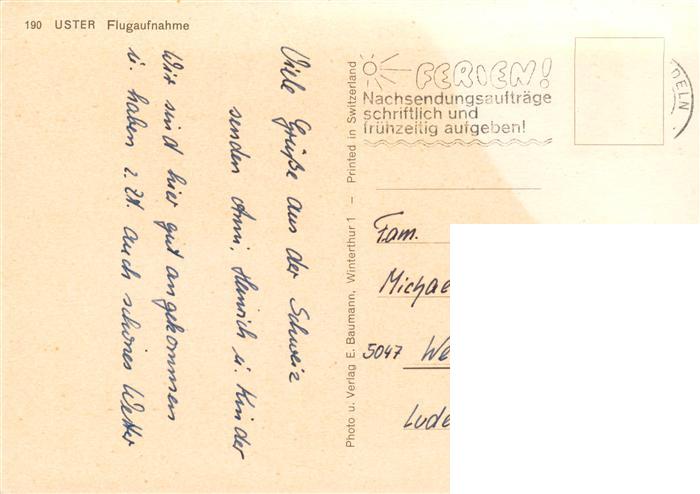 190 USTER Flugaufnahme
Viele Grüße aus der Schweiz
senden Anni, Heinrich u. Kinder
Wir sind hier gut angekommen
u. haben z. Zt. auch schönes Wetter
Photo u. Verlag E. Baumann, Winterthur 1 – Printed in Switzerland
FERIEN!
Nachsendungsaufträge
schriftlich und
frühzeitig aufgeben!
DELN
Fam.
Michae
5047 We
Lude